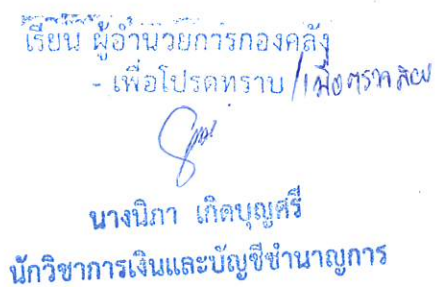 เรียน ผู้อำนวยการกองคลัง
- เพื่อโปรดทราบ/เพื่อตรวจสอบ
นางนิภา เกิดบุญศรี
นักวิชาการเงินและบัญชีชำนาญการ